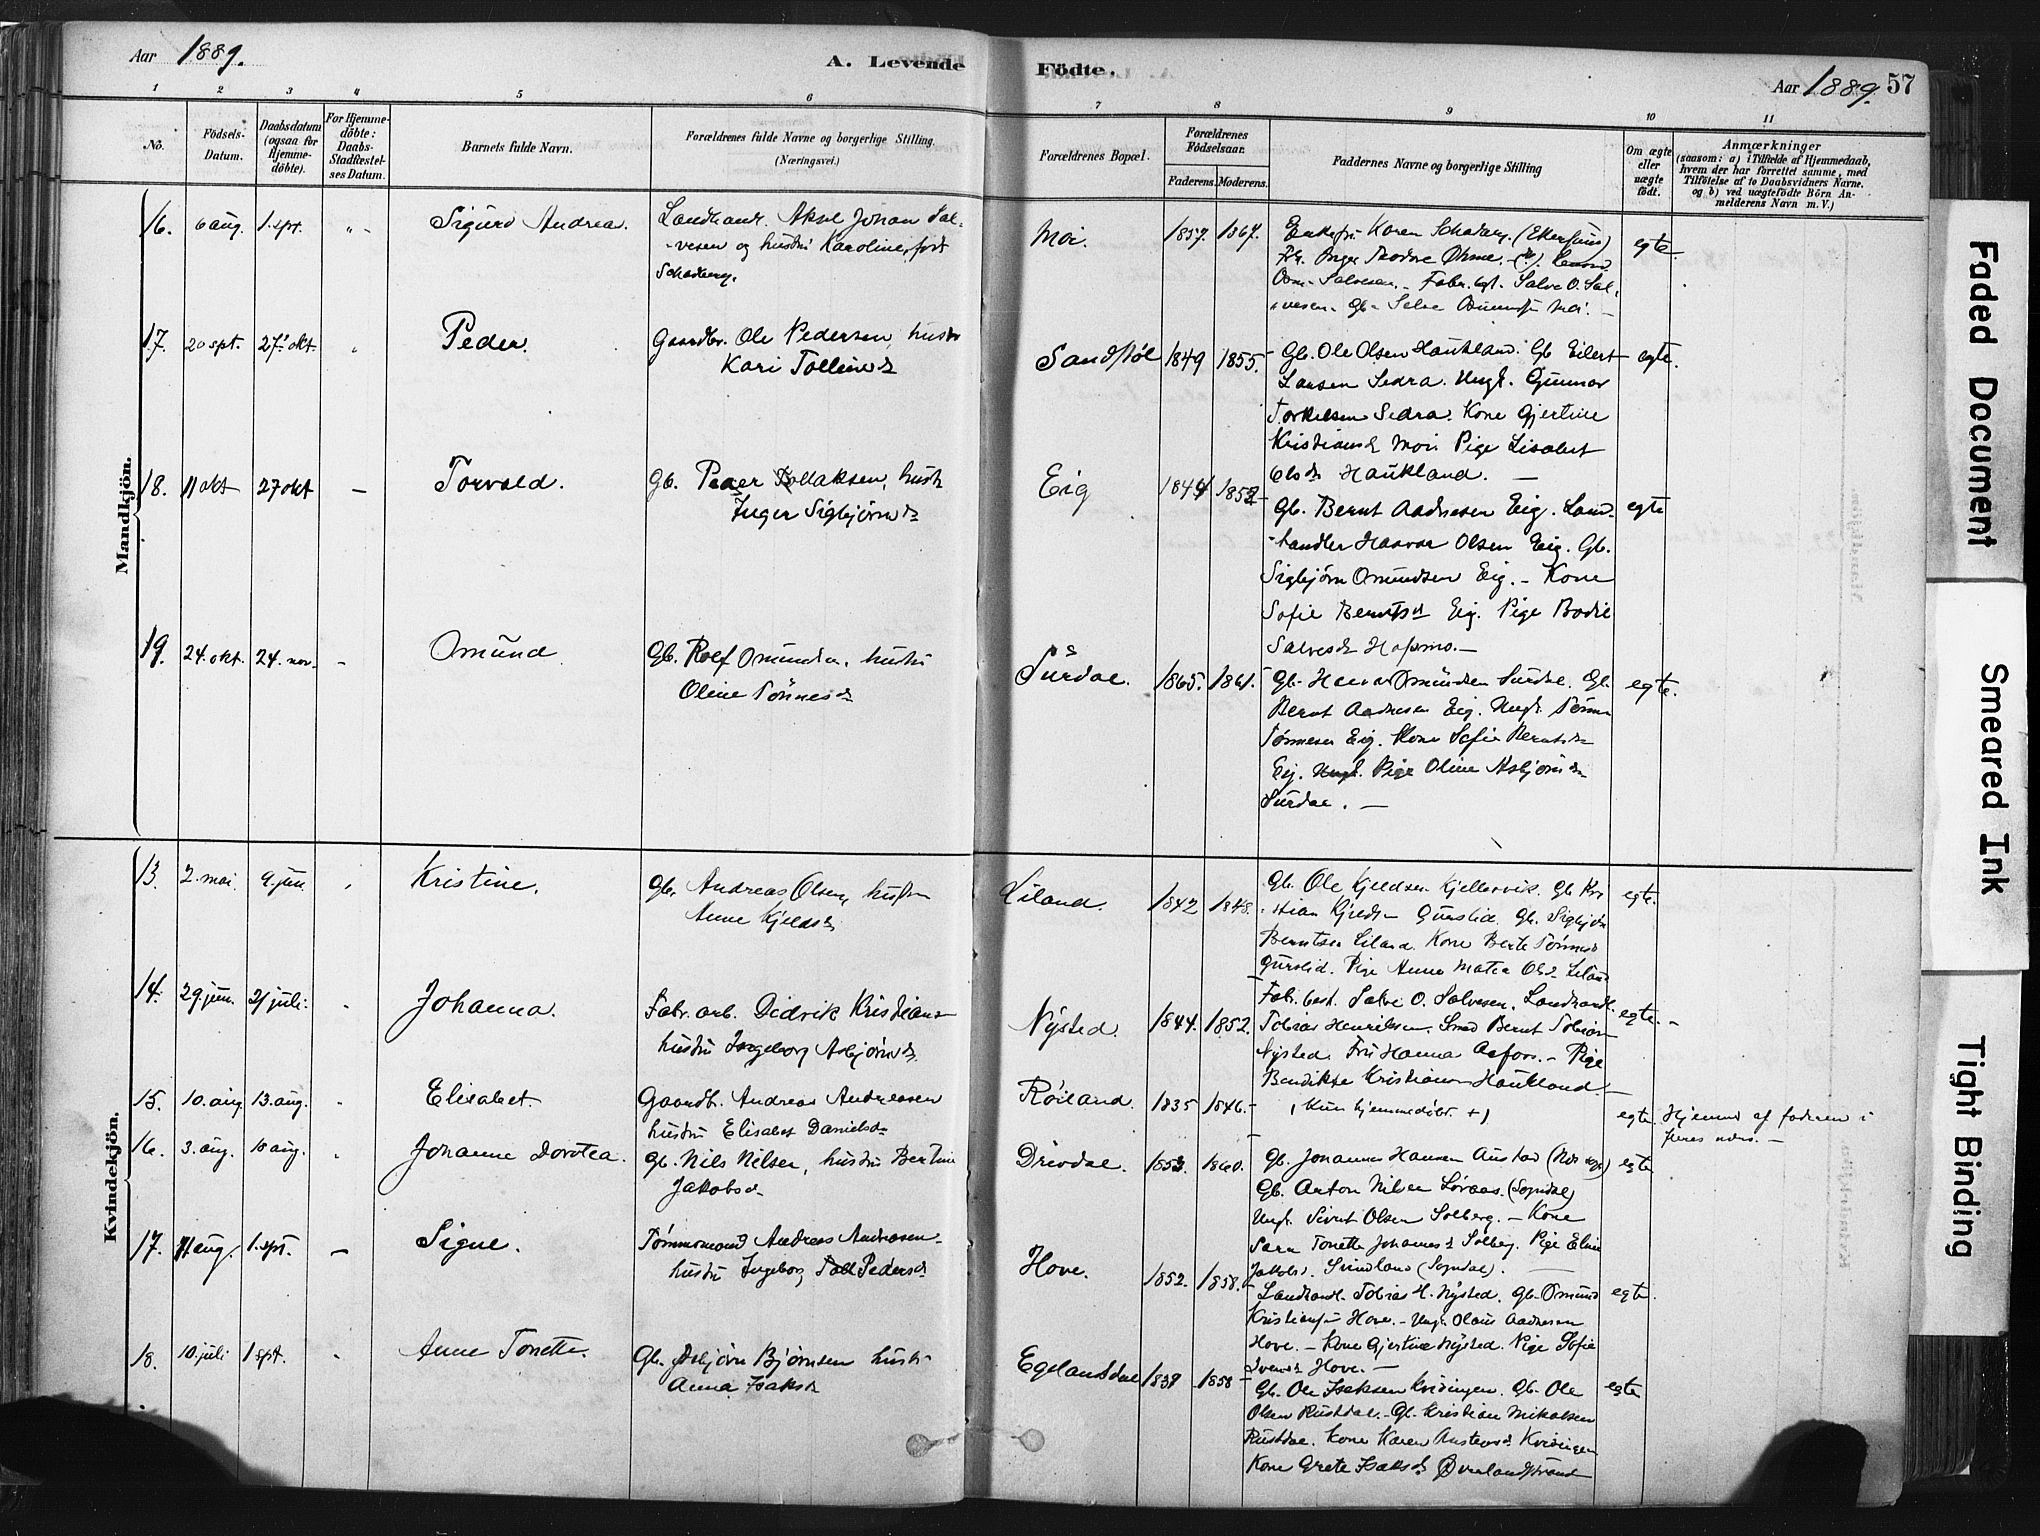 Aar 1889.
A. Levende
Födte.
Aar 1889. 57
1 2 3 4 5 6
7 8 9 10 11
No.
Födsels-
Datum.
Daabsdatum
(ogsaa for
Hjemme-
döbte).
For Hjemme-
döbte:
Daabs-
Stadfæstel-
ses Datum.
Barnets fulde Navn.
Forældrenes fulde Navne og borgerlige Stilling.
(Næringsvei.)
Forældrenes Bopæl.
Forældrenes
Födselsaar.
Faderens. Moderens.
Faddernes Navne og borgerlige Stilling
Om ægte
eller
uægte
födt.
Anmærkninger
(saasom: a) i Tilfælde af Hjemmedaab,
hvem der har forrettet samme, med
Tilföielse af to Daabsvidners Navne,
og b) ved uægtefödte Börn An-
melderens Navn m. V.)
Mandkjön.
16. 6 aug. 1. spt. Sigurd Andrea.
Landhand. Aksel Johan Sal-
vesen og hustru Karoline, født
Schadberg.
Moi. 1857. 1867.
Enkefru Karen
Salvesen. - Fabr. Salve O. Sal-
vesen.
egte.
17. 20 spt. 27 okt. Peder.
Gaardbr. Ole Pedersen, hustr
Kari Tollines
Sandstøl 1849 1855.
Gb. Ole Olsen Haukland. Gb Eilert
Larsen Sedra. Ungk. Gunnar
Torkelsen Sedra. Kone Gjertine
Kristiansd. Moi Pige Lisabet
Olsd. Haukland. -
egte.
18. 11 okt 27 okt - Torvald.
Gb. Peder Tollaksen, hustr
Inger Sigbjørnsd
Eig 1844 1852
Gb. Bernt Aadnesen Eig. Land-
handler Haavar Olsen Eig. Gb.
Sigbjørn Omundsen Eig. - Kone
Sofie Berntsd Eig. Pige Bodil
Salvesd. -
egte
19. 24. okt. 24. nov. - Omund.
Gb. Rolf Omundsen, hustru
Oline Tönnesd
Surdal. 1865. 1861.
Gb. Haavar Omundsen Surdal. Gb.
Bernt Aadnesen Eig. Ungk. Tønnes
Tønnesen Eig. Kone Sofie Berntsd.
Eig. Pige Oline Asbjørnsd.
Surdal. -
egte.
Kvindekjön.
13. 2. mai. 9. jun. Kristine.
Gb. Andreas Olsen, hustru
Anne Kjeldsd
Liland. 1842 1848.
Gb. Ole Kjeldsen Kjellervik. Gb Kri-
stian Kjeldsen Gurslid. Gb. Sigbjørn
Berntsen Liland. Kone Berte Tønnesd
Gurslid. Pige Anne Matea Olsd. Liland
egte.
14. 29. jun. 21 juli. Johanna.
Fabr. arb. Didrik Kristians-
hustru Ingeborg Asbjørnsd.
Nysted. 1844. 1852.
Fabr. best. Salve O. Salvesen. Landhandl.
Tobias Henriksen. Smed Bernt Tobias
Nysted. Fru Hanna Aafoss. - Pige
Bendikte Kristians Haukland.
egte. -
15. 10. aug. 13. aug. Elisabet.
Gaardb. Andreas Andreasen
hustru Elisabet Danielsd.
Røiland. 1835 1846.
(Kun hjemmedøbt. +)
egte. Hjemmed af faderen i
16. 3. aug. 18 aug. Johanne Dorotea.
Gb. Nils Nilsen, hustru Bertine
Jakobsd
Drivdal. 1853. 1860.
Gb. Johannes Hansen Austad
Gb. Anton Nilsen (Sogndal)
Ungk. Sivert Olsen Solberg. - Kone
Sara Tonette Johannesd Solberg. Pige Eline
Jakobsd. Svindland (Sogndal).
egte
17. 11 aug. 1. spt. - Signe.
Tømmermand Andreas Andreasen-
hustru Ingeborg Pedersd
Hove. 1852. 1858.
Landhandl. Tobias H. Nysted. Gb. Omund
Kristiansen Hove. - Ungk. Olaus Aadnesen
Hove. - Kone Gjertine Nysted. Pige Sofie
Svensd. Hove. -
egte.
18. 10. juli 1 spt. Anne Tonette.
Gb. Asbjørn Bjørnsen hustr
Anna Isaksd
Egelandsdal 1838 1858
Gb. Ole Isaksen Kvidingen. Gb. Ole
Olsen Rustdal. - Gb. Kristian Mikalsen
Rustdal. Kone Karen Kvidingen
Kone Grete Isaksd. Øvrelandstrand
egte
Faded Document
Smeared Ink
Tight Binding